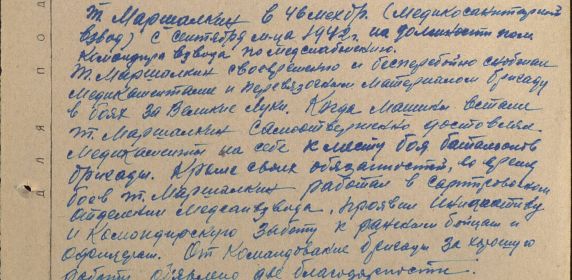 т. Маршалкин в 46 мехбр. (Медикосанитарный
взвод) с сентября м-ца 1942г. на должности пом
командира взвода по медснабжению.
Т. Маршалкин своевременно и бесперебойно снабжал
медикаментами и перевязочным материалом бригаду
в боях за Великие Луки. Когда машины встали
т. Маршалкин самоотверженно доставлял
медикаменты на себе к месту боя батальонов
бригады. Кроме своих обязанностей, во время
боев т. Маршалкин работал в сортировочном
отделении Медсанвзвода, проявил инициативу
и командирскую заботу к раненым бойцам и
офицерам. От командования бригады за хорошую
работу объявлено две благодарности.
для под